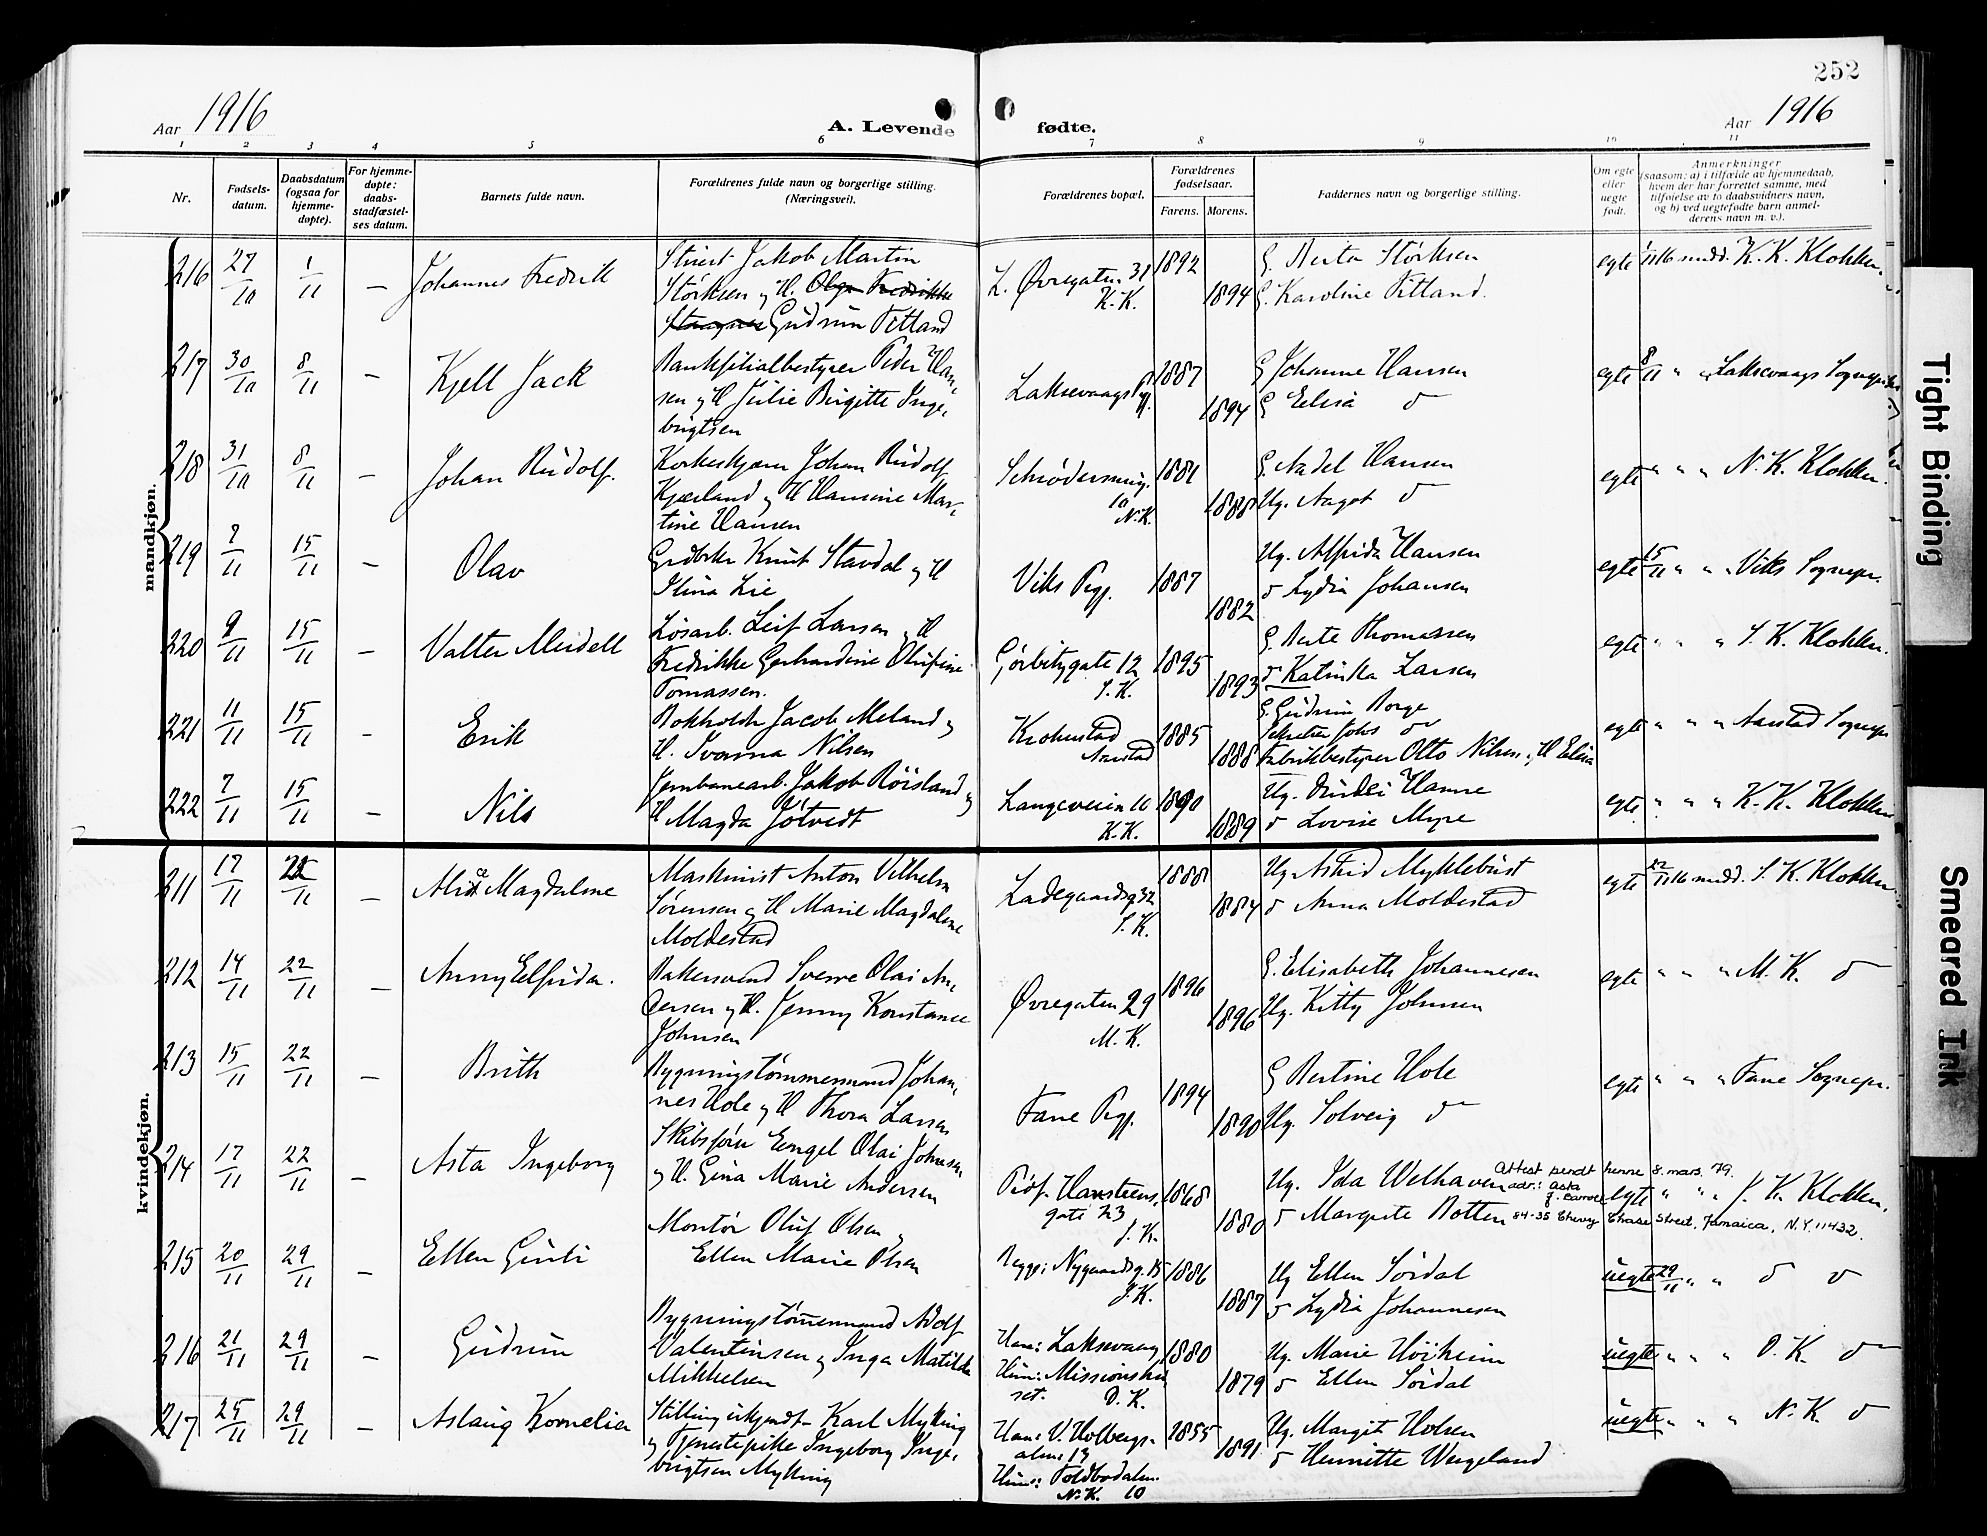 252
Aar 1916
A. Levende fødte.
Aar 1916
1 2 3 4 5 6 7 8 9 10 11
Nr.
Fødsels-
datum.
Daabsdatum
(ogsaa for
hjemme-
døpte).
For hjemme-
døpte:
daabs-
stadfæstel-
ses datum.
Barnets fulde navn.
Forældrenes fulde navn og borgerlige stilling.
(Næringsvei).
Forældrenes bopæl.
Forældrenes
fødselsaar.
Farens. Morens.
Faddernes navn og borgerlige stilling.
Om egte
eller
uegte
født.
Anmerkninger
(saasom: a) i tilfælde av hjemmedaab,
hvem der har forrettet samme, med
tilføielse av to daabsvidners navn,
og b) ved uegtefødte barn anmel-
derens navn m. v.).
mandkjøn.
216 27/10 1/11 — Johannes Fredrik
Stuert Jakob Martin
Størksen og H. Olga Fredrikke
Gudrun Fitland
L. Øvregaten 31
K.K.
1892
1894
G. Berta Størksen
G. Karoline Fitland.
egte 1/11 16 medd. K. K. Klokker.
217 30/10 8/11 — Kjell Jack
Bankfilialbestyrer Peder Han-
sen og H Julie Birgitte Inge-
brigtsen
Laksevaags Pgj.
1887
1894
G Johanne Hansen
G Elisa do
egte 8/11 " " Laksevaags Sognepr.
218 31/10 8/11 — Johan Rudolf.
Korkeskjærer Johan Rudolf
Kjærland og H Hansine Mar-
tine Hansen
Schrødersmug.
10
N.K.
1881
1888
G. Aadel Hansen
Ug. Aagot do
egte " " " N. K. Klokker.
219 2/11 15/11 — Olav
Knut Stavdal og H
Stina Lie
Viks Pgj.
1887
1882
Ug. Alfrida Hansen
do Lydia Johansen
egte 15/11 " " Viks Sognepr.
220 9/11 15/11 — Valter Meidell
Løsarb. Leif Larsen og H
Fredrikke Gerhardine Olufine
Tomassen.
Gørbitzgate 12
S.K.
1895
1893
G. Berte Thomassen
do Katinka Larsen
egte " " " S. K. Klokker.
221 11/11 15/11 — Erik
Bokholder Jacob Meland og
H. Ivanna Nilsen
Krohnstad
Aarstad
1885
1888
G. Gudrun Borge
Johs do
Fabrikbestyrer Otto Nilsen, H Elisa
egte " " " Aarstad Sognepr
222 7/11 15/11 — Nils
Jernbanearb. Jakob Røisland og
H Magda Jötvedt
Langeveien 10
K.K.
1890
1889
Ug. Hanne
do Lovise Myre
egte " " " K. K. Klokker
kvindekjøn.
211 17/11 22/11 — Alice Magdalene
Maskinist Anton Vilhelm
Sørensen og H Marie Magdalene
Moldestad
Ladegaardsg. 32
S.K.
1888
1884
Ug Astrid Myklebust
do Anna Moldestad
egte 22/11 16 medd. S. K. Klokker.
212 14/11 22/11 — Anny Elfrida.
Bakersvend Sverre Olai An-
dersen og H. Jenny Konstance
Johnsen
Øvregaten 29
M.K.
1896
1896
G. Elisabeth Johannesen
Ug. Kitty Johnsen
egte " " " M. K. do
213 15/11 22/11 — Brith
Bygningstømmermand Johan-
nes Hole og H Thora Larsen
Fane Pgj.
1894
1890
G Bertine Hole
Ug. Solveig do
egte " " " Fane Sognepr.
214 17/11 22/11 — Asta Ingeborg
Skibsfører Engel Olai Johnsen
og H. Gina Marie Andersen
Prof. Hansteens-
gate 23
J.K.
1868
1880
Ug. Ida Welhaven
do Margrete Rotten
Attest sendt henne 8. mars. 79.
adr.: Asta
J. Carroll
84-35 Chevy Chase Street, Jamaica, N.Y. 11432.
egte " " " J. K. Klokker.
215 20/11 29/11 — Ellen Gurli
Montør Oluf Olsen og
Ellen Marie Olsen
Begge: Nygaardsg. 15
J.K.
1886
1887
Ug Ellen Sørdal
do Lydia Johannesen
uegte 29/11 " " do do
216 21/11 29/11 — Gudrun
Bygningstømmermand Adolf
Valentinsen og Inga Matilde
Mikkelsen
Han: Laksevaag
Hun: Missionshu-
set. D.K.
1880
1879
Ug. Marie Høiheim
do Ellen Sørdal
uegte " " " D. K. do
217 25/11 29/11 — Aslaug Kornelia
Stilling ukjendt Karl Myking
og Tjenestepike Ingeborg Inge-
brigtsen Myking
Han: V. Holbergs-
alm. 13
Hun: Toldbodalm.
N.K. 10
1855
1891
Ug. Margit Holsen
do Henriette Wergeland
uegte " " " N. K. do
Tight Binding
Smeared Ink